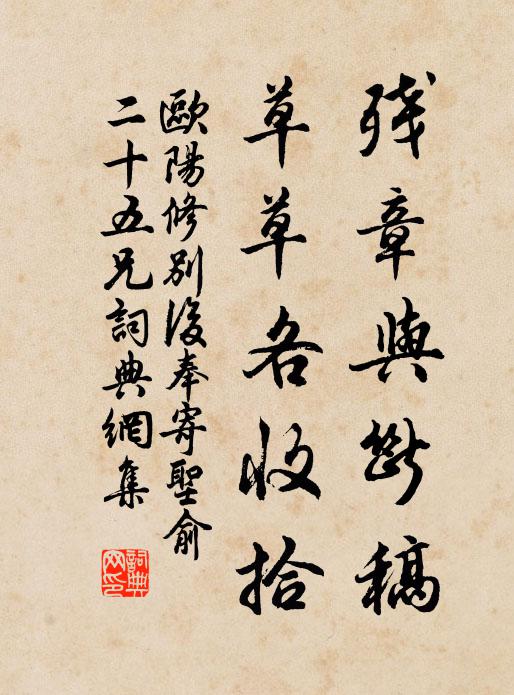 殘章與斷稿
草草各收拾
歐陽修別後奉寄聖俞
二十五兄詞典網集
詞典網印